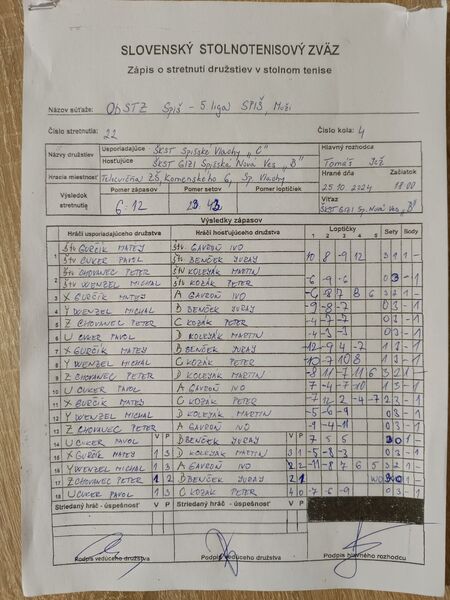 SLOVENSKÝ STOLNOTENISOVÝ ZVÄZ
Zápis o stretnutí družstiev v stolnom tenise
Názov súťaže: ObSTZ Spiš - 5. liga SPIŠ, Muži
Číslo stretnutia: 22 Číslo kola: 4
Názvy družstiev Usporiadajúce ŠKST Spišské Vlachy "C" Hlavný rozhodca
Hosťujúce ŠKST GIZI Spišská Nová Ves "B" Tomáš
Hracia miestnosť Telocvičňa ZŠ, Komenského 6, Sp. Vlachy Hrané dňa Začiatok
Výsledok stretnutia Pomer zápasov Pomer setov Pomer loptičiek 25.10.2024 18:00
6:12 23:43 Víťaz
ŠKST GIZI Sp. Nová Ves "B"
Výsledky zápasov
Hráči usporiadajúceho družstva Hráči hosťujúceho družstva Loptičky Sety Body
1 2 3 4 5
1 Štv GURČÍK MATEJ Štv GAVROŇ IVO
Štv CUKER PAVOL Štv BENČEK JURAJ 10 8 -9 12 3 1 1 -
2 Štv CHOVANEC PETER Štv KOLEJÁK MARTIN
Štv WENZEL MICHAL Štv KOZÁK PETER -6 -9 -6 0 3 - 1
3 X GURČÍK MATEJ A GAVROŇ IVO
4 Y WENZEL MICHAL B BENČEK JURAJ -9 -8 -2 0 3 - 1
5 Z CHOVANEC PETER C KOZÁK PETER -4 -7 -7 0 3 - 1
6 U CUKER PAVOL D KOLEJÁK MARTIN -4 -3 -3 0 3 - 1
7 X GURČÍK MATEJ B BENČEK JURAJ -12 -9 4 -2 1 3 - 1
8 Y WENZEL MICHAL C KOZÁK PETER
9 Z CHOVANEC PETER D KOLEJÁK MARTIN -8 11 -7 11 6 3 2 1 -
10 U CUKER PAVOL A GAVROŇ IVO
11 X GURČÍK MATEJ C KOZÁK PETER
12 Y WENZEL MICHAL D KOLEJÁK MARTIN -5 -6 -9 0 3 - 1
13 Z CHOVANEC PETER A GAVROŇ IVO -9 -4 -11 0 3 - 1
14 U CUKER PAVOL V P B BENČEK JURAJ V P 7 5 5 3 0 1 -
15 X GURČÍK MATEJ 1 3 D KOLEJÁK MARTIN 3 1
16 Y WENZEL MICHAL 1 3 A GAVROŇ IVO 2 2 -11 -8 7 6 5 3 2 1 -
17 Z CHOVANEC PETER 1 2 B BENČEK JURAJ 2 1
18 U CUKER PAVOL 1 3 C KOZÁK PETER 4 0 -7 -6 -9 0 3 - 1
Striedaný hráč - úspešnosť V P Striedaný hráč - úspešnosť V P
Podpis vedúceho družstva Podpis vedúceho družstva Podpis hlavného rozhodcu